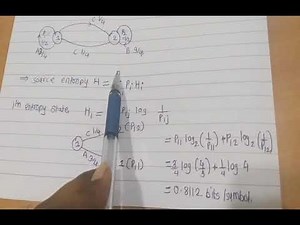 C 1/4
1 2
C 1/4 B 3/4
⇒ source entropy H = Pi Hi
Ist entropy state Hi = Pij log 1/Pij
C 1/4 (P12) = P11 log2 (1/P11) + P12 log2 (1/P12)
1 A 3/4 1 (P11) = 3/4 log (4/3) + 1/4 log 4
= 0.8112 bits/symbol